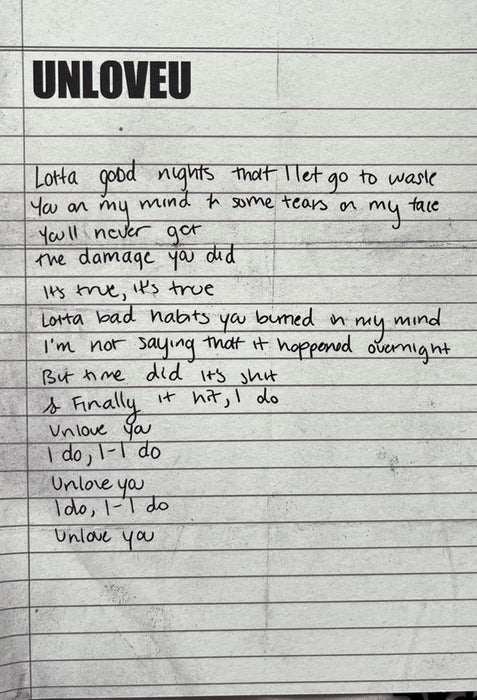 UNLOVEU
Lotta good nights that I let go to waste
You on my mind & some tears on my face
You'll never get
the damage you did
It's true, it's true
Lotta bad habits you burned in my mind
I'm not saying that it happened overnight
But time did it's shit
& Finally it hit, I do
Unlove you
I do, I-I do
Unlove you
I do, I-I do
Unlove you